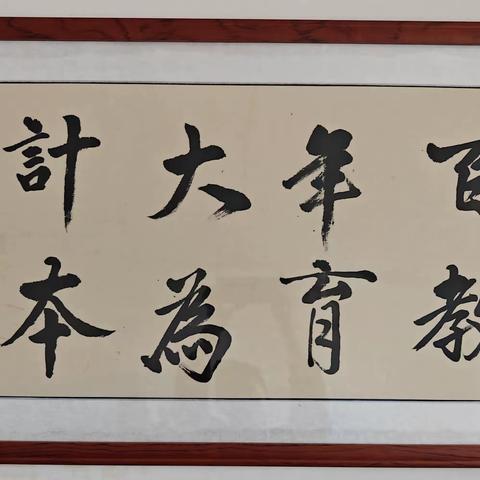 百年大計
教育為本